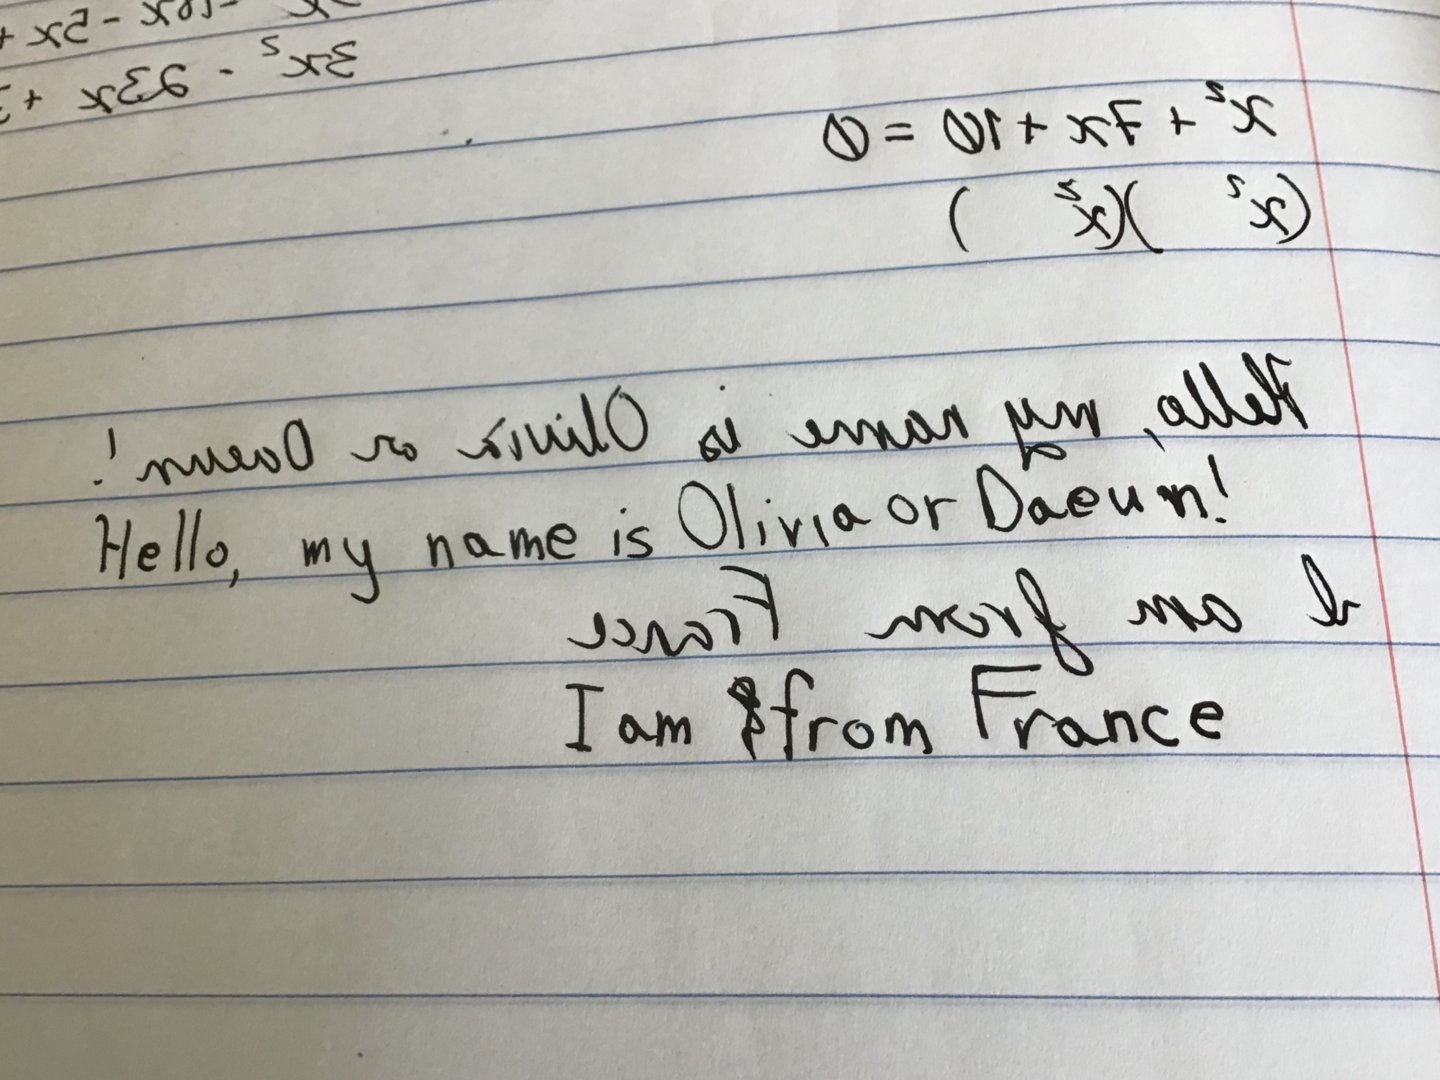 - 16x - 5x +
3x² - 23x + 3
x² + 7x + 10 = 0
(x² )(x² )
Hello, my name is Olivia or Daeun!
Hello, my name is Olivia or Daeun!
I am from France
I am from France